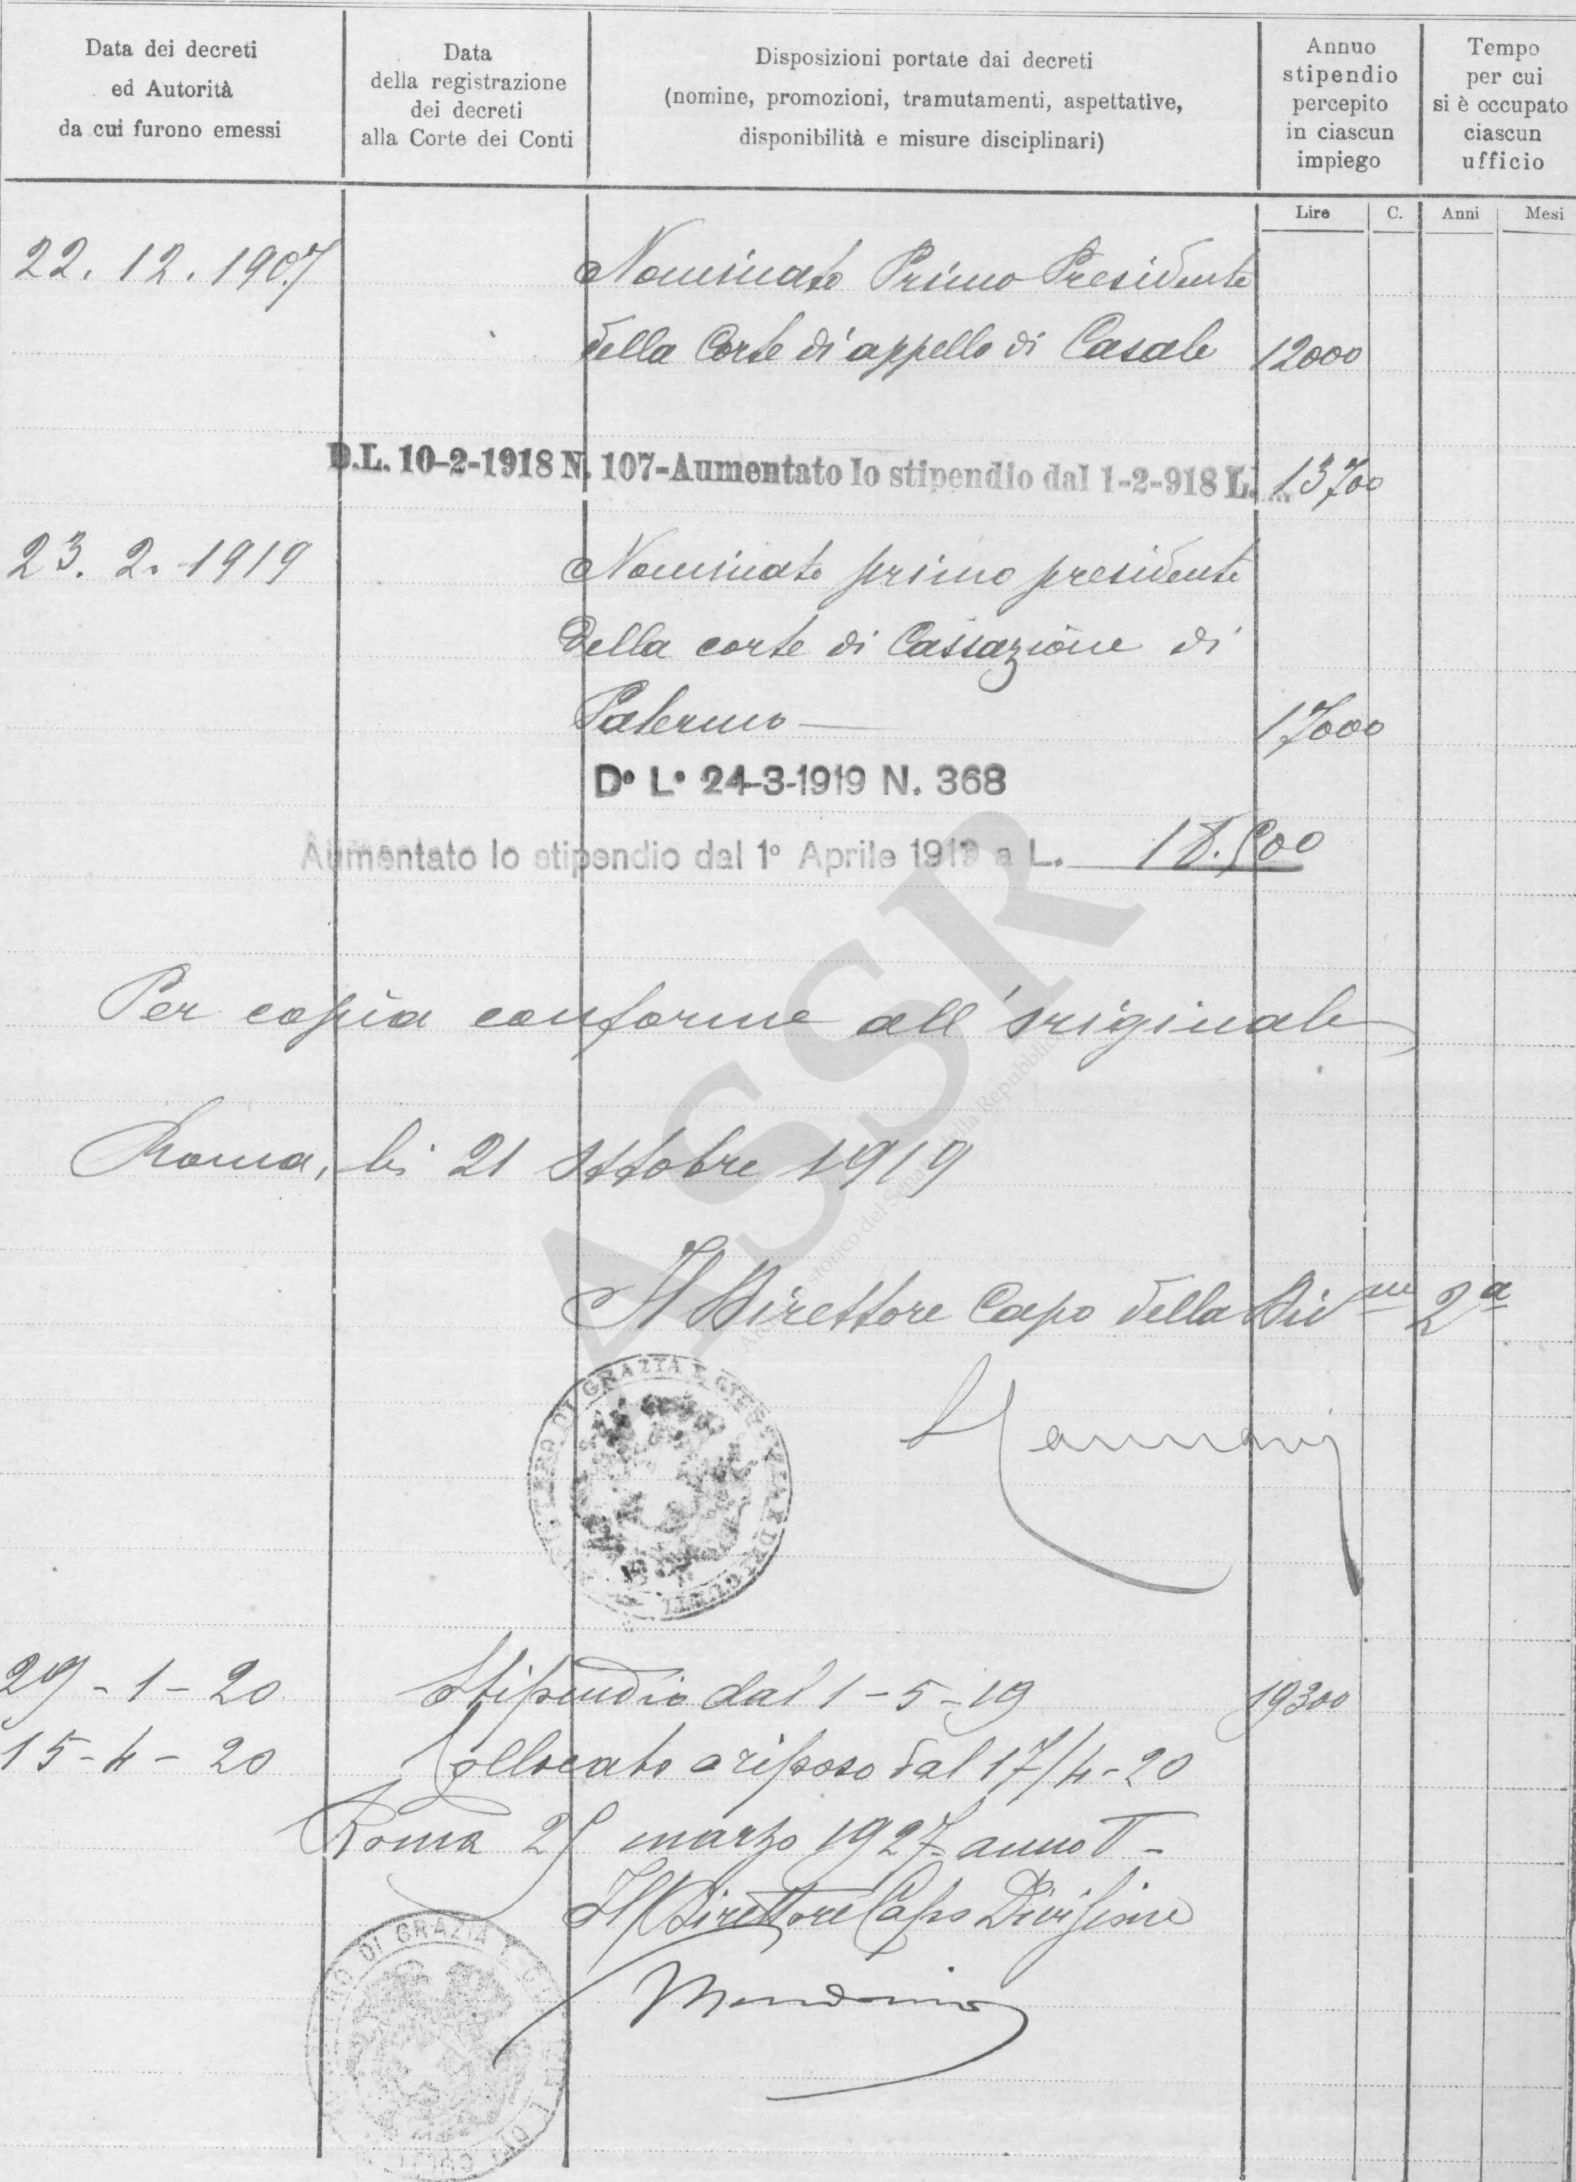 Data dei decreti
ed Autorità
da cui furono emessi
Data
della registrazione
dei decreti
alla Corte dei Conti
Disposizioni portate dai decreti
(nomine, promozioni, tramutamenti, aspettative,
disponibilità e misure disciplinari)
Annuo
stipendio
percepito
in ciascun
impiego
Tempo
per cui
si è occupato
ciascun
ufficio
Lire C. Anni Mesi
22. 12. 1907 Nominato Primo Presidente
della Corte di appello di Casale 12000
D.L. 10-2-1918 N. 107-Aumentato lo stipendio dal 1-2-918 L. 13700
23. 2. 1919 Nominato primo presidente
della corte di Cassazione di
Palermo 17000
D. L. 24-3-1919 N. 368
Aumentato lo stipendio dal 1° Aprile 1919 a L. 18.500
Per copia conforme all'originale
Roma, li 21 ottobre 1919
Il Direttore Capo della Div ne 2a
MINISTERO DI GRAZIA E GIUSTIZIA E DEI CULTI
29-1-20 Stipendio dal 1-5-19 19300
15-4-20 Collocato a riposo dal 17/4-20
Roma 25 marzo 1927 anno V -
Il Direttore Capo Divisione
DI GRAZIA E
ASSR
Archivio storico del Senato della Repubblica